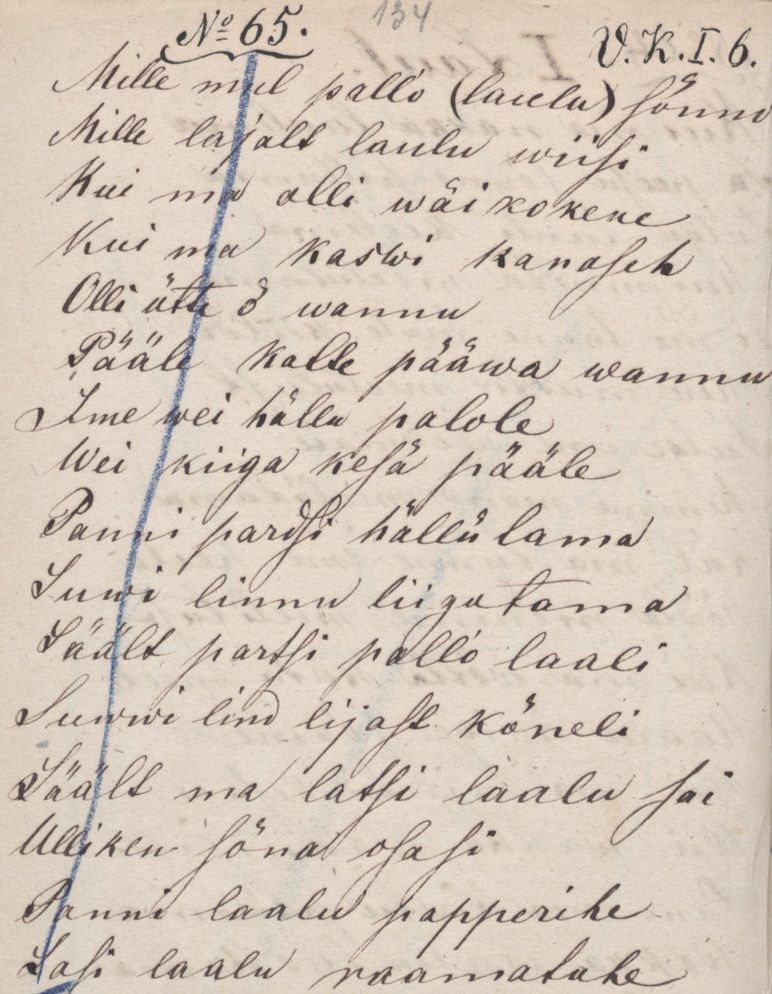 № 65.
134
V. K. I. 6.
Mille mul pallo (laulu) sõnno
Mille lajalt laulu wiisi
Kui ma olli wäikokene
Kui ma kaswi kanaseh
Olli ütte ö wannu
Pääle katte pääwa wannu
Ime wei hällu palole
Wei kiiga kesä pääle
Panni pardsi hällülama
Suwi linnu liigutama
Säält partsi pallo laali
Suwwi lind lijast kõneli
Säält ma latsi laalu sai
Ulliken sõna osasi
Panni laalu papperihe
Lasi laalu raamatuhe